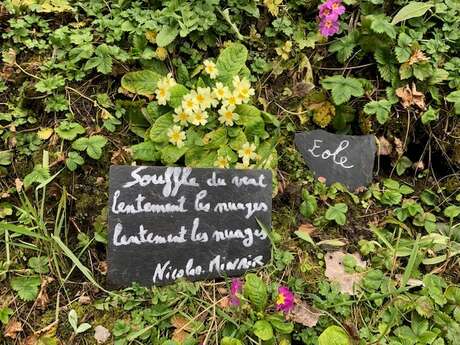 Souffle du vent
lentement les nuages
lentement les nuages
Nicolas MINAIR
Eole